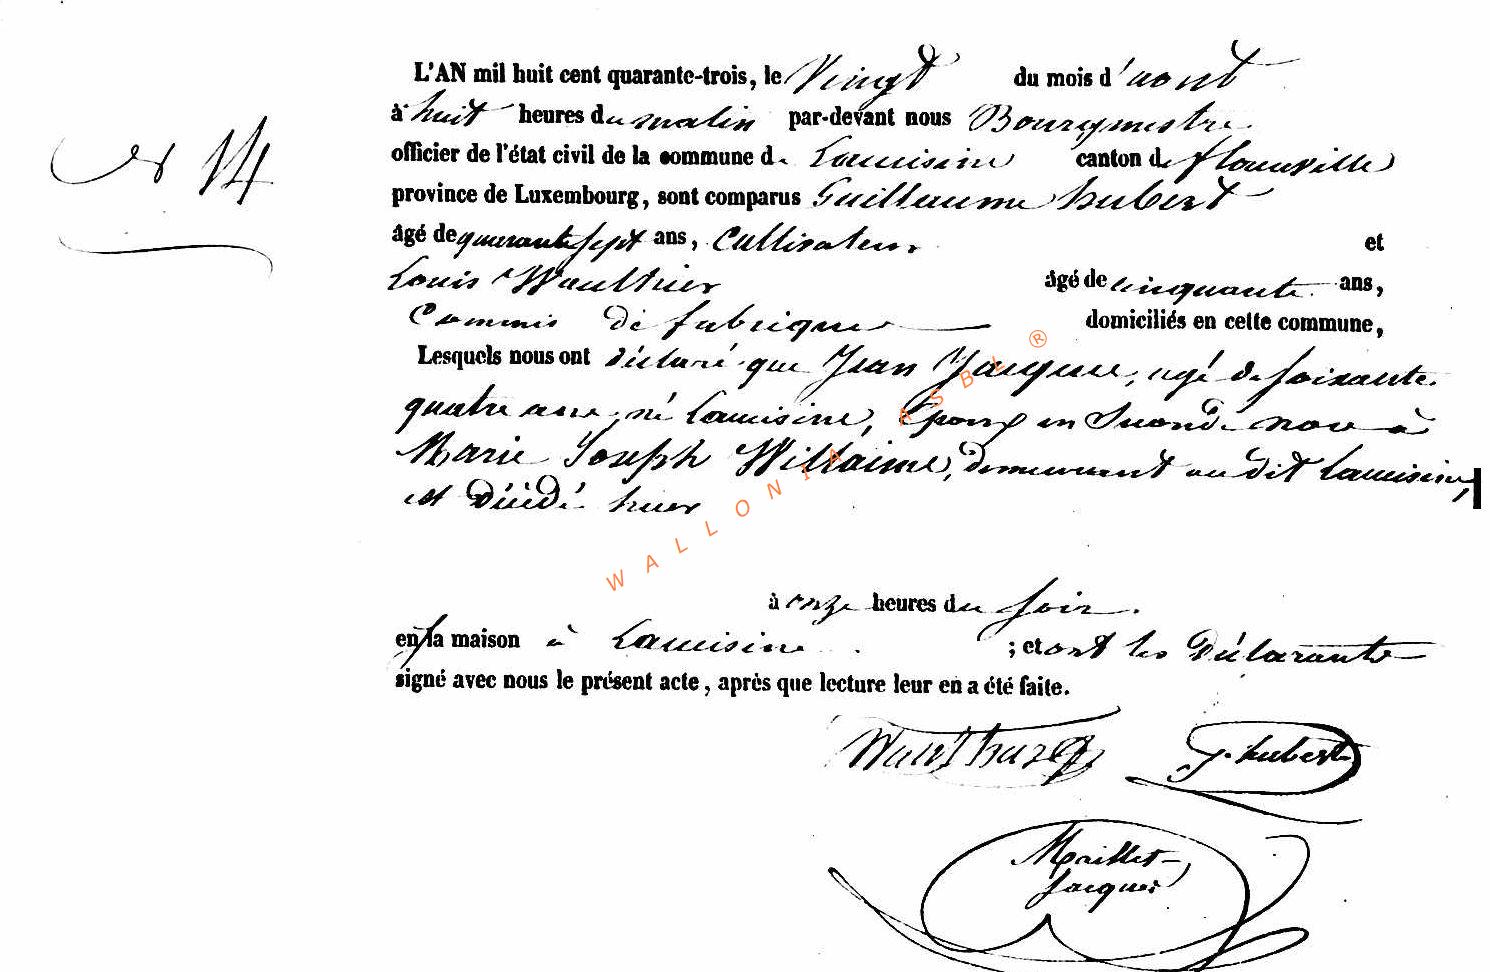 L'AN mil huit cent quarante-trois, le Vingt du mois d'aout
à huit heures du matin par-devant nous Bourgmestre
officier de l'état civil de la commune de Lacuisine canton de florenville
N° 14
province de Luxembourg, sont comparus Guillaume hubert
âgé de quarante sept ans, Cultivateur et
Louis Waulthier âgé de cinquante ans,
Commis de fabrique domiciliés en cette commune,
Lesquels nous ont déclaré que Jean Jacques, agé de soixante
quatre ans, né Lacuisine, Epoux en Seconde noce à
Marie Joseph Willaime, demeurant au dit Lacuisine,
est décédé hier
à onze heures du soir.
en sa maison à Lacuisine ; et ont les Déclarants
signé avec nous le présent acte, après que lecture leur en a été faite.
g. hubert
Maillet-
Jacques
WALLONIA ASBL ®